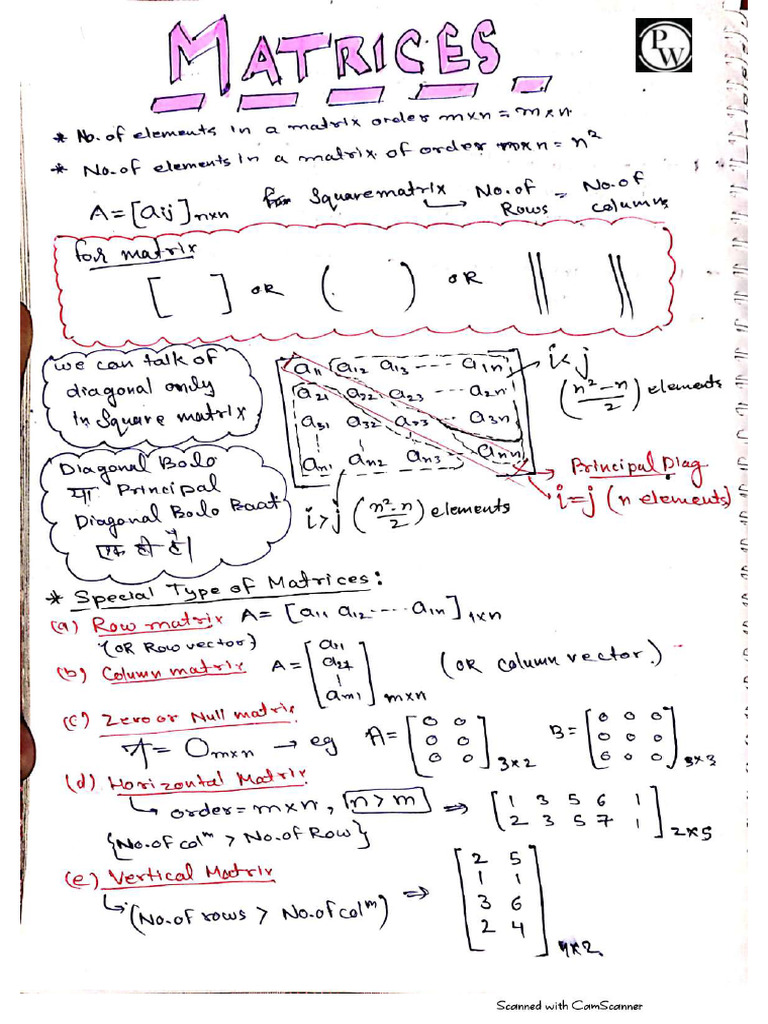 MATRICES
PW
* No. of elements in a matrix order m×n = m×n.
* No. of elements in a matrix of order n×n = n²
A = [aij]n×n for Square matrix → No. of Rows = No. of columns
for matrix
[ ] OR ( ) OR || ||
we can talk of
diagonal only
in Square matrix
a11 a12 a13 ---- a1n
a21 a22 a23 ---- a2n
a31 a32 a33 --- a3n
an1 an2 an3 ann
i<j
(n²-n/2) elements
Principal Diag
i=j (n elements)
i>j (n²-n/2) elements
Diagonal Bolo
या Principal
Diagonal Bolo Baat
एक ही है।
* Special Type of Matrices:
(a) Row matrix A = [a11 a12 ---- a1n]1×n
(OR Row vector)
(b) Column matrix A = [a11 a21 am1]m×n (OR column vector.)
(c) Zero or Null matrix
A = Om×n → eg A = [0 0 0 0 0 0]3×2 B = [0 0 0 0 0 0 0 0 0]3×3
(d) Horizontal Matrix
↳ order = m×n, n>m ⇒ [1 3 5 6 1
2 3 5 7 1]2×5
{No. of colm > No. of Row}
(e) Vertical Matrix
↳ (No. of rows > No. of colm) ⇒ [2 5
1 1
3 6
2 4]4×2
Scanned with CamScanner